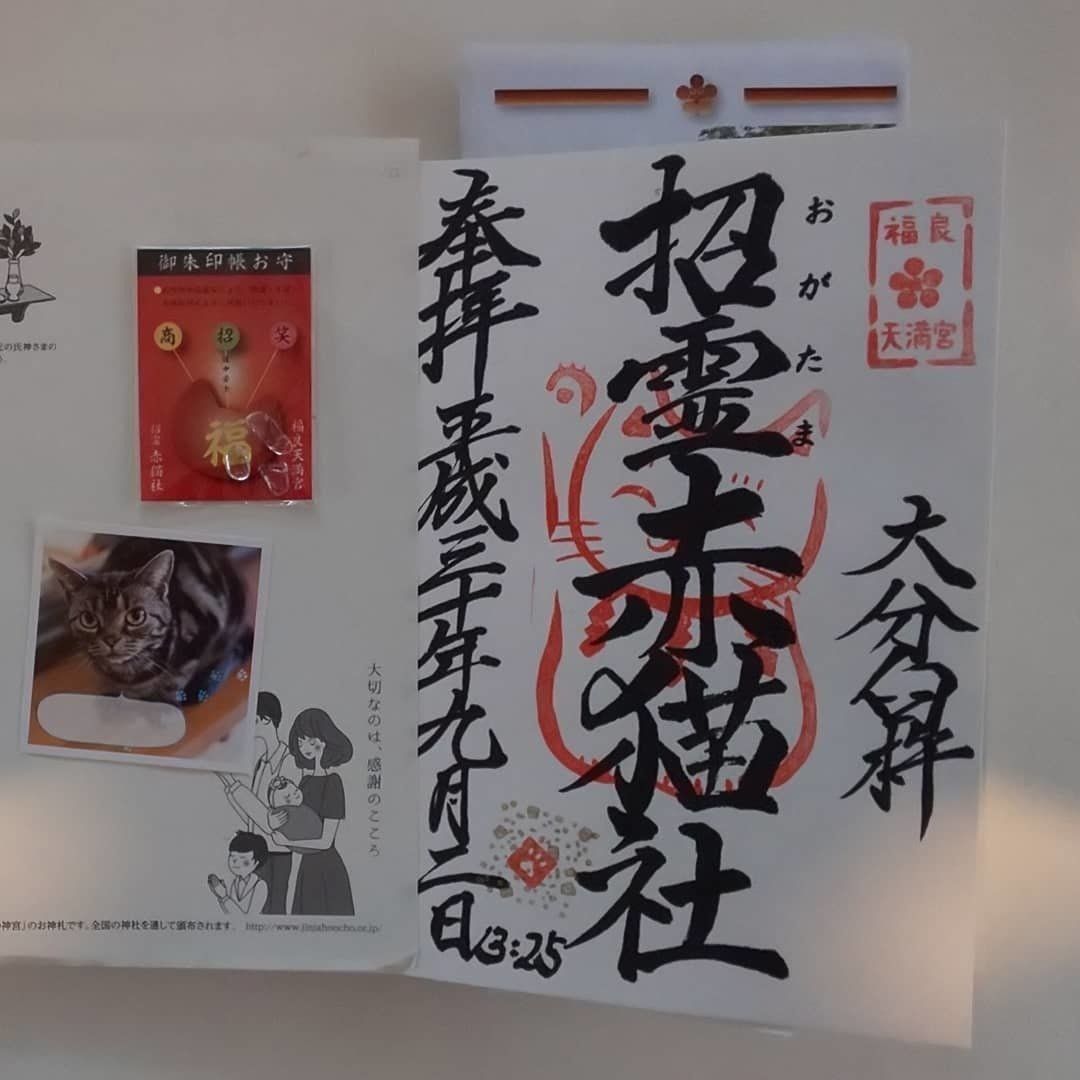 大分臼杵
福良
天満宮
招霊赤猫社
おがたま
奉拝 平成三十年九月二日
13:25
御朱印帳お守
商
招
笑
福
福良天満宮
招霊 赤猫社
元の氏神さまの
大切なのは、感謝のこころ
神宮」のお神札です。全国の神社を通して頒布されます。 http://www.jinjahoncho.or.jp/